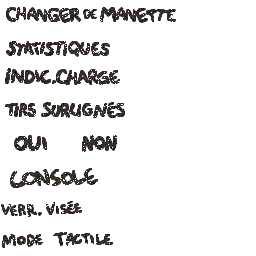 CHANGER DE MANETTE
STATISTIQUES
INDIC.CHARGE
TIRS SURLIGNÉS
OUI NON
CONSOLE
VERR. VISÉE
MODE TACTILE